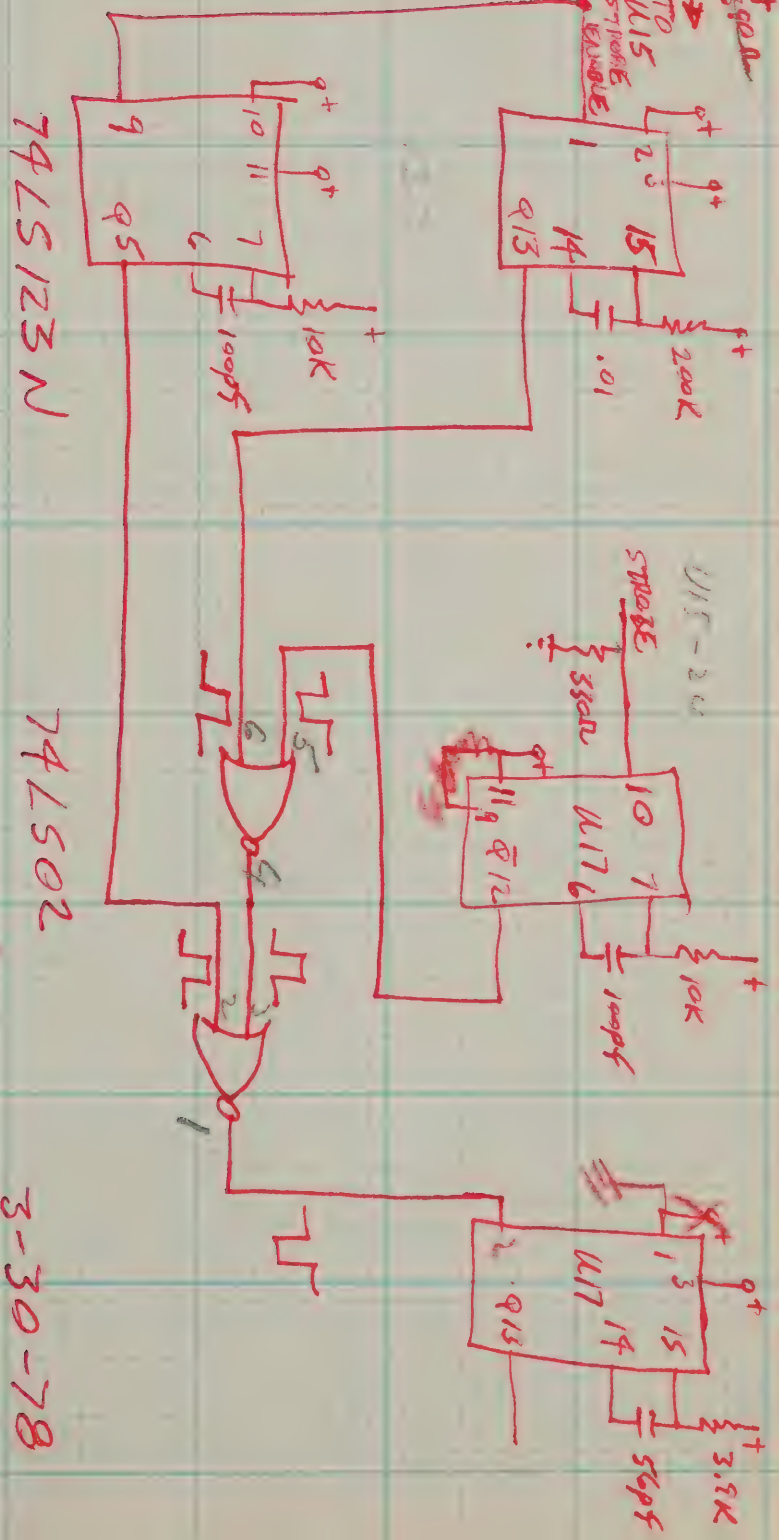 TO
U15
STROBE
ENABLE
2 3 15
1 14
Q13
+
+
+
200K
.01
10 11 7
9 6
Q5
+
+
+
10K
100pf
74LS123N
STROBE
330Ω
10 7
U17 6
11 9 Q̅12
+
+
10K
100pf
6 5
4
2 3
1
74LS02
1 3 15
U17 14
2 Q13
+
+
+
56pf
3-30-78